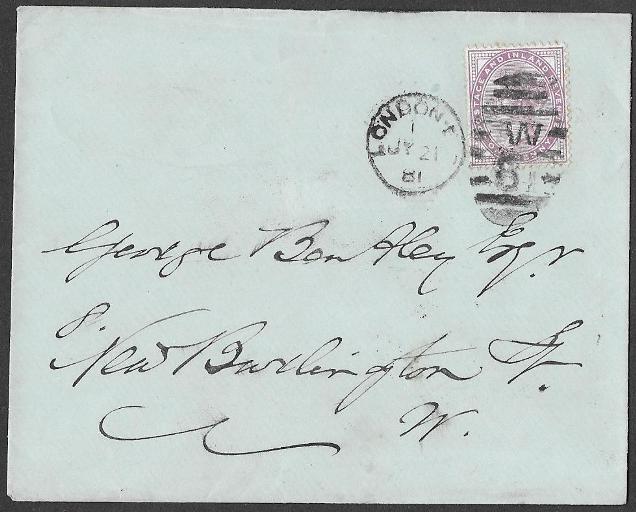 POSTAGE AND INLAND REVENUE
LONDON
1
JY 21
81
W
George Bentley Esqr
8. New Burlington St.
W.